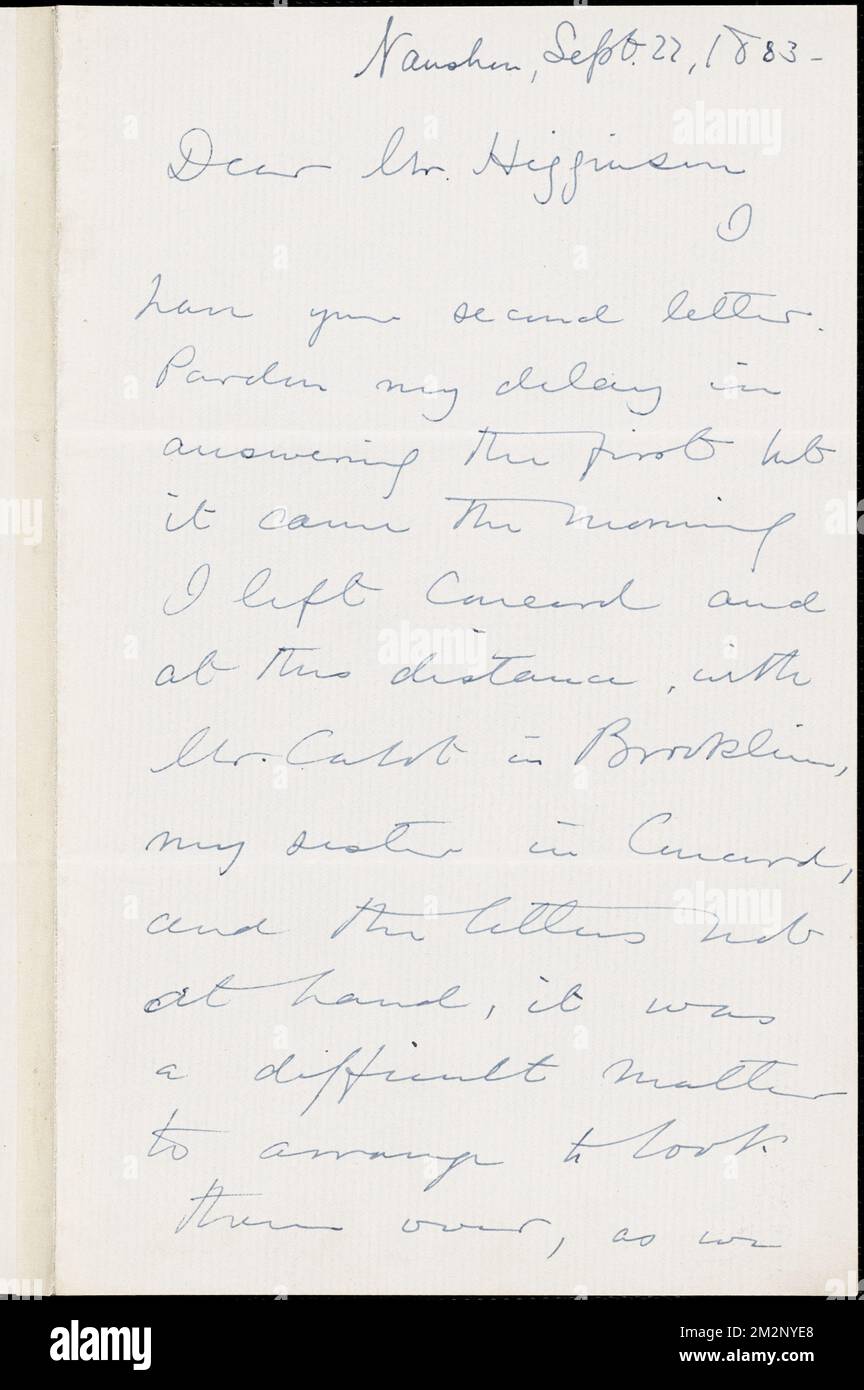 Naushon, Sept. 22, 1883-
Dear Mr. Higginson
I
have your second letter.
Pardon my delay in
answering the first but
it came the morning
I left Concord and
at this distance, with
Mr. Cabot in Brookline,
my sister in Concord,
and the letters not
at hand, it was
a difficult matter
to arrange to look
them over, as we
alamy
Image ID: 2M2NYE8
www.alamy.com